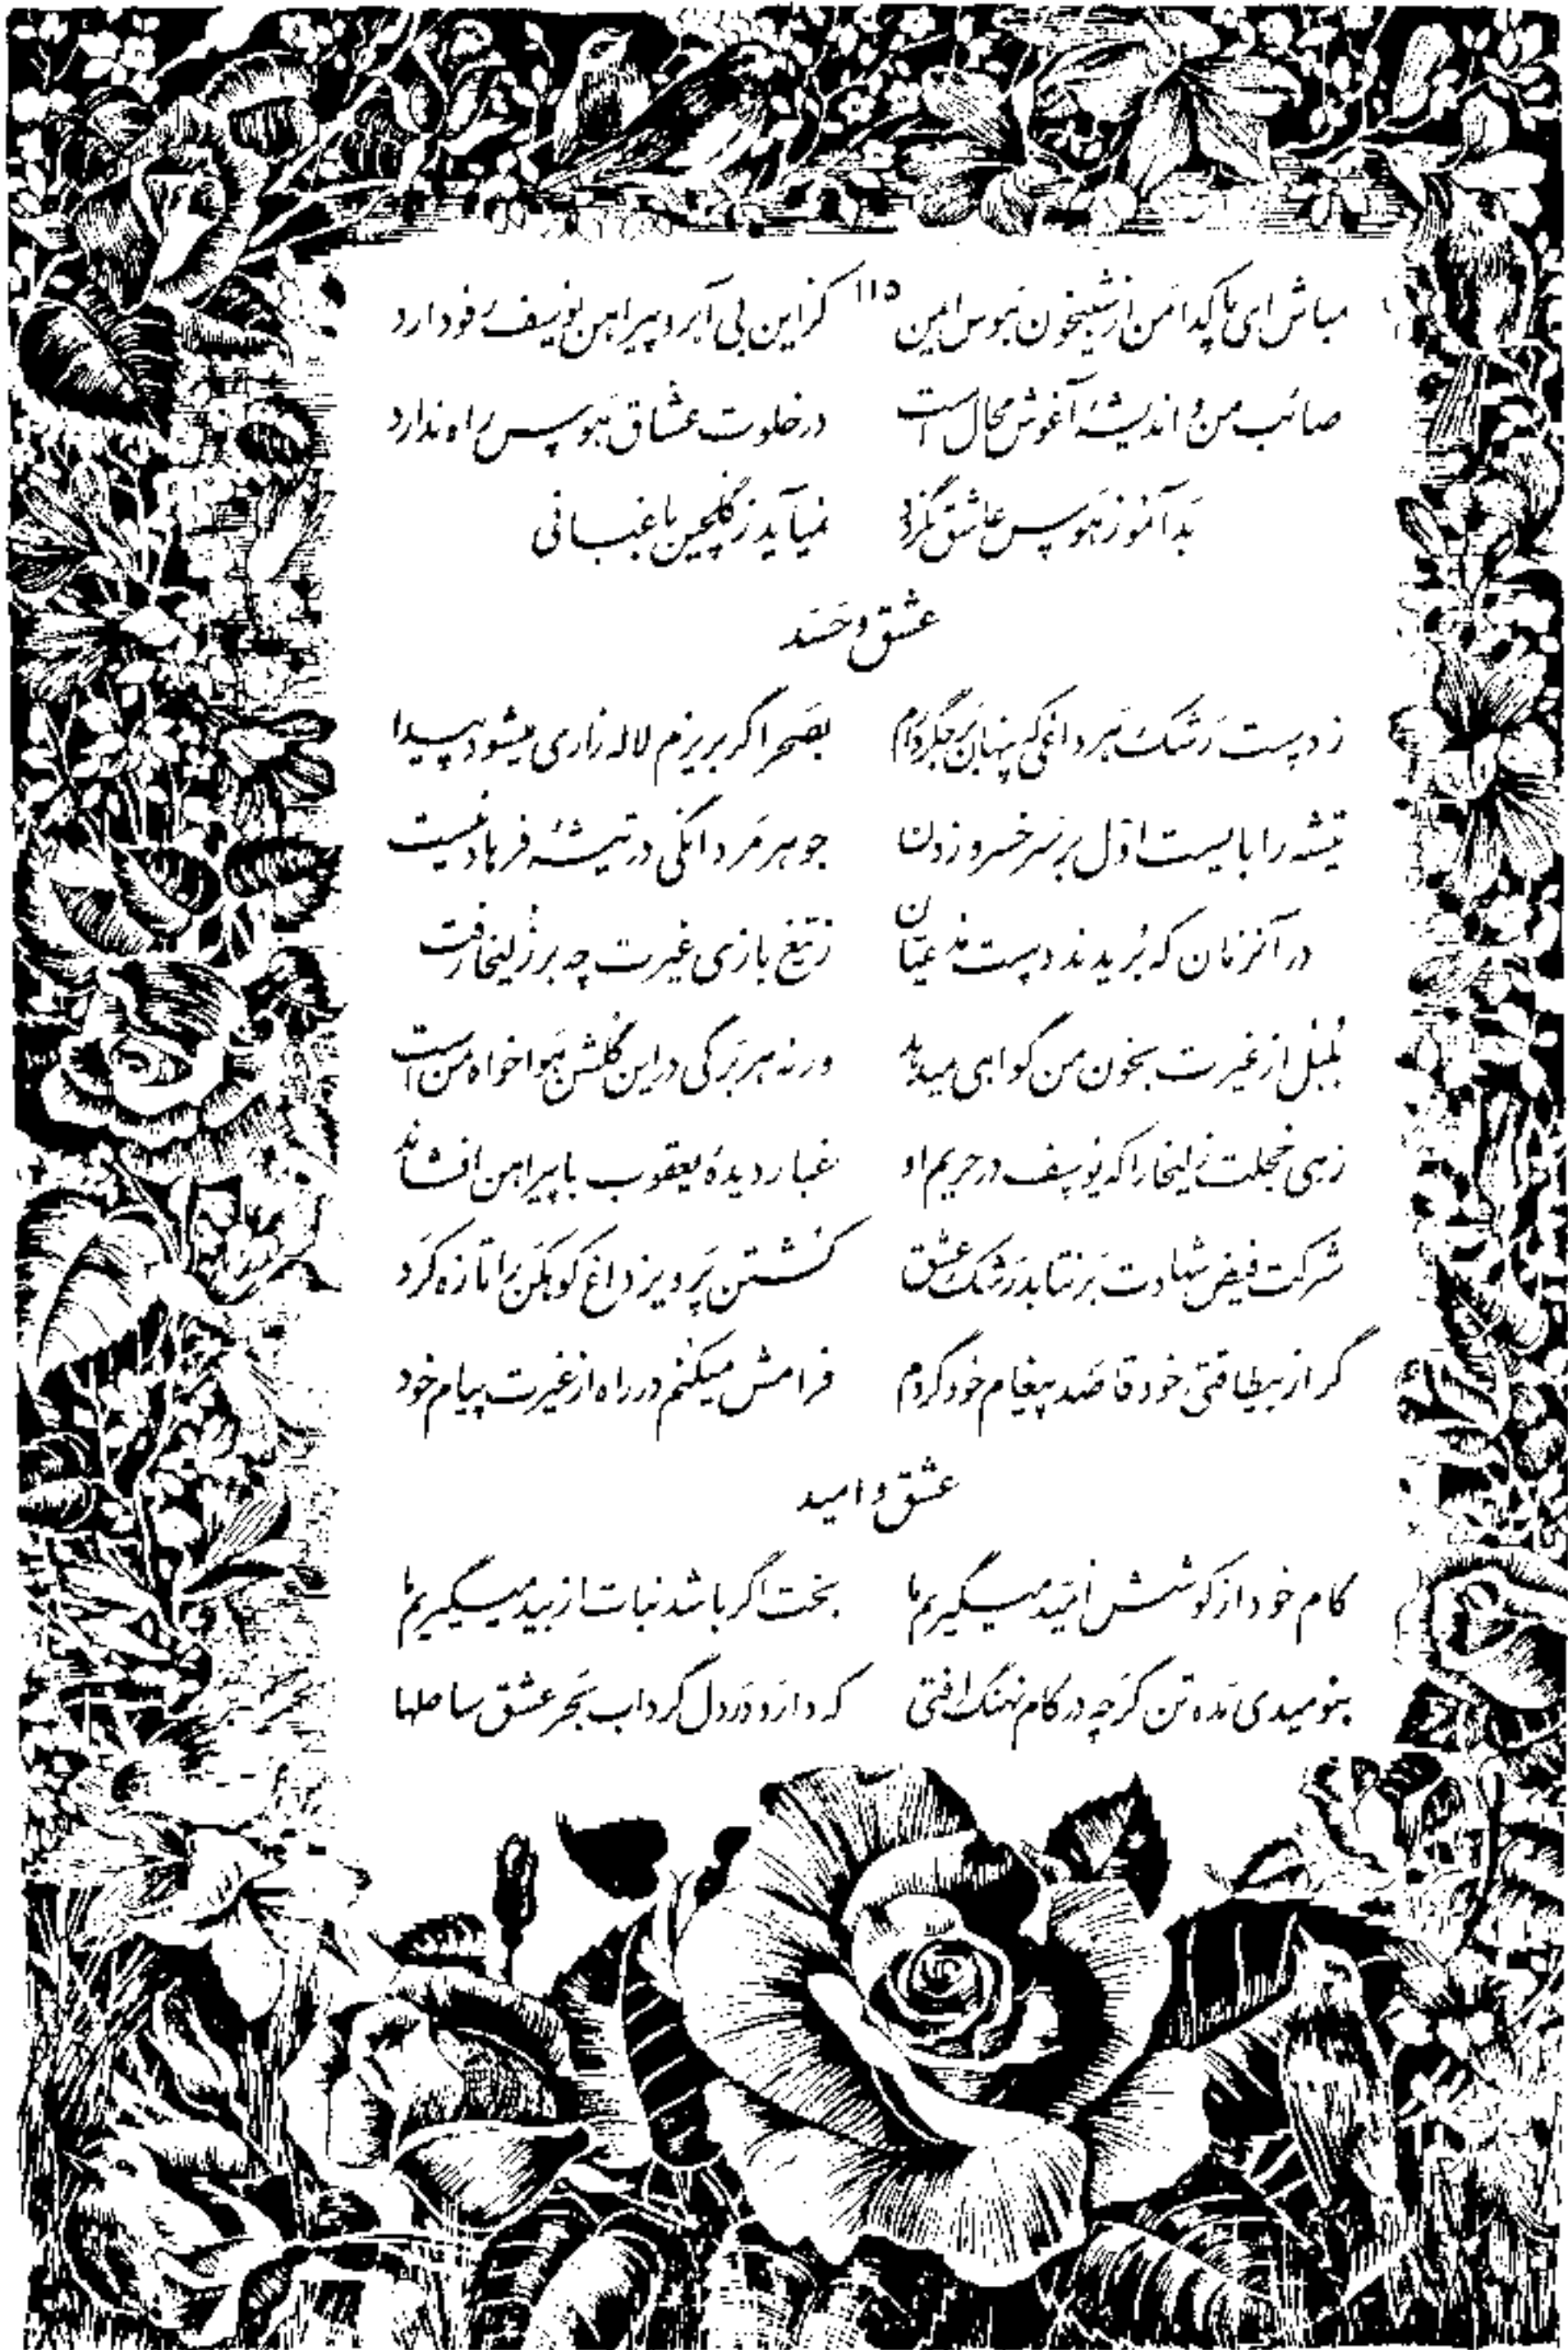 مباش ای پاکدامن از شبیخون هوس ایمن ۱۱۵ کزاین بی آبرو پیراهن یوسف رفو دارد
صائب من و اندیشهٔ آغوش محال است در خلوت عشاق هوس راه ندارد
بدآموز هوس عاشق نگردد نمیآید ز گلچین باغبانی
عشق و حسد
ز دست رشک هر داغی که پنهان بر جگر دارم بصحرا گر بریزم لاله زاری میشود پیدا
تیشه را بایست اوّل بر سر خسرو زدن جوهر مردانگی در تیشهٔ فرهاد نیست
در آنزمان که بُریدند دست مدعیان ز تیغ بازی غیرت چه بر زلیخا رفت
بُلبُل از غیرت بخون من گواهی میدهد ورنه هر برگی دراین گلشن هواخواه من است
زهی خجلت زلیخا را که یوسف در حریم او غبار دیدهٔ یعقوب با پیراهن افشاند
شرکت فیض شهادت برنتابد رشک عشق کشتن پرویز داغ کوهکن را تازه کرد
گر از بیطاقتی خود قاصد پیغام خود گردم فرامش میکنم در راه از غیرت پیام خود
عشق و امید
کام خود از کوشش امّید میگیریم ما بخت اگر باشد نبات از بید میگیریم ما
بنومیدی مده تن گرچه در کام نهنگ افتی که دارد در دل گرداب بحر عشق ساحلها